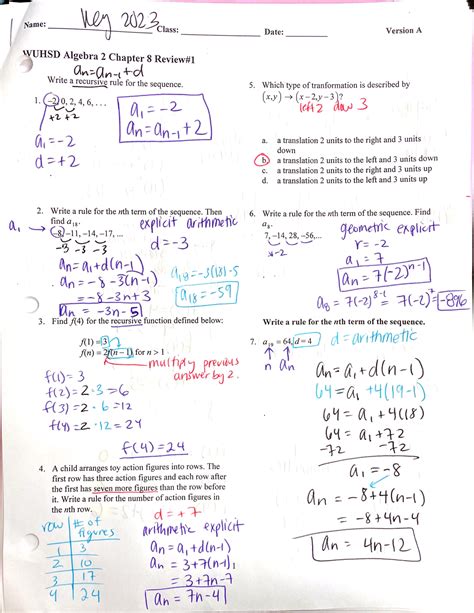 Name: Key 2023 Class: Date: Version A
WUHSD Algebra 2 Chapter 8 Review#1
an = an-1 + d
Write a recursive rule for the sequence.
1. -2, 0, 2, 4, 6, . . .
+2 +2
a1 = -2
d = +2
a1 = -2
an = an-1 + 2
2. Write a rule for the nth term of the sequence. Then
find a18.
a1 → -8, -11, -14, -17, ...
-3 -3 -3
explicit arithmetic
d = -3
an = a1 + d(n-1)
= -8 - 3(n-1)
= -8 - 3n + 3
an = -3n - 5
a18 = -3(18) - 5
a18 = -59
3. Find f(4) for the recursive function defined below:
f(1) = 3
f(n) = 2f(n - 1) for n > 1
multiply previous
answer by 2.
f(1) = 3
f(2) = 2 · 3 = 6
f(3) = 2 · 6 = 12
f(4) = 2 · 12 = 24
f(4) = 24
4. A child arranges toy action figures into rows. The
first row has three action figures and each row after
the first has seven more figures than the row before
it. Write a rule for the number of action figures in
the nth row.
d = +7
row # of figures
1 3
2 10
3 17
4 24
arithmetic explicit
an = a1 + d(n-1)
an = 3 + 7(n-1)
= 3 + 7n - 7
an = 7n - 4
5. Which type of tranformation is described by
(x, y) → (x - 2, y - 3)?
left 2 down 3
a. a translation 2 units to the right and 3 units
down
b. a translation 2 units to the left and 3 units down
c. a translation 2 units to the right and 3 units up
d. a translation 2 units to the left and 3 units up
6. Write a rule for the nth term of the sequence. Find
a8.
7, -14, 28, -56,...
×-2
geometric explicit
r = -2
a1 = 7
an = 7(-2)^n-1
a8 = 7(-2)^8-1 = 7(-2)^7 = -896
Write a rule for the nth term of the sequence.
7. a19 = 64, d = 4 d = arithmetic
n an
an = a1 + d(n-1)
64 = a1 + 4(19-1)
64 = a1 + 4(18)
64 = a1 + 72
-72 -72
a1 = -8
an = -8 + 4(n-1)
= -8 + 4n - 4
an = 4n - 12